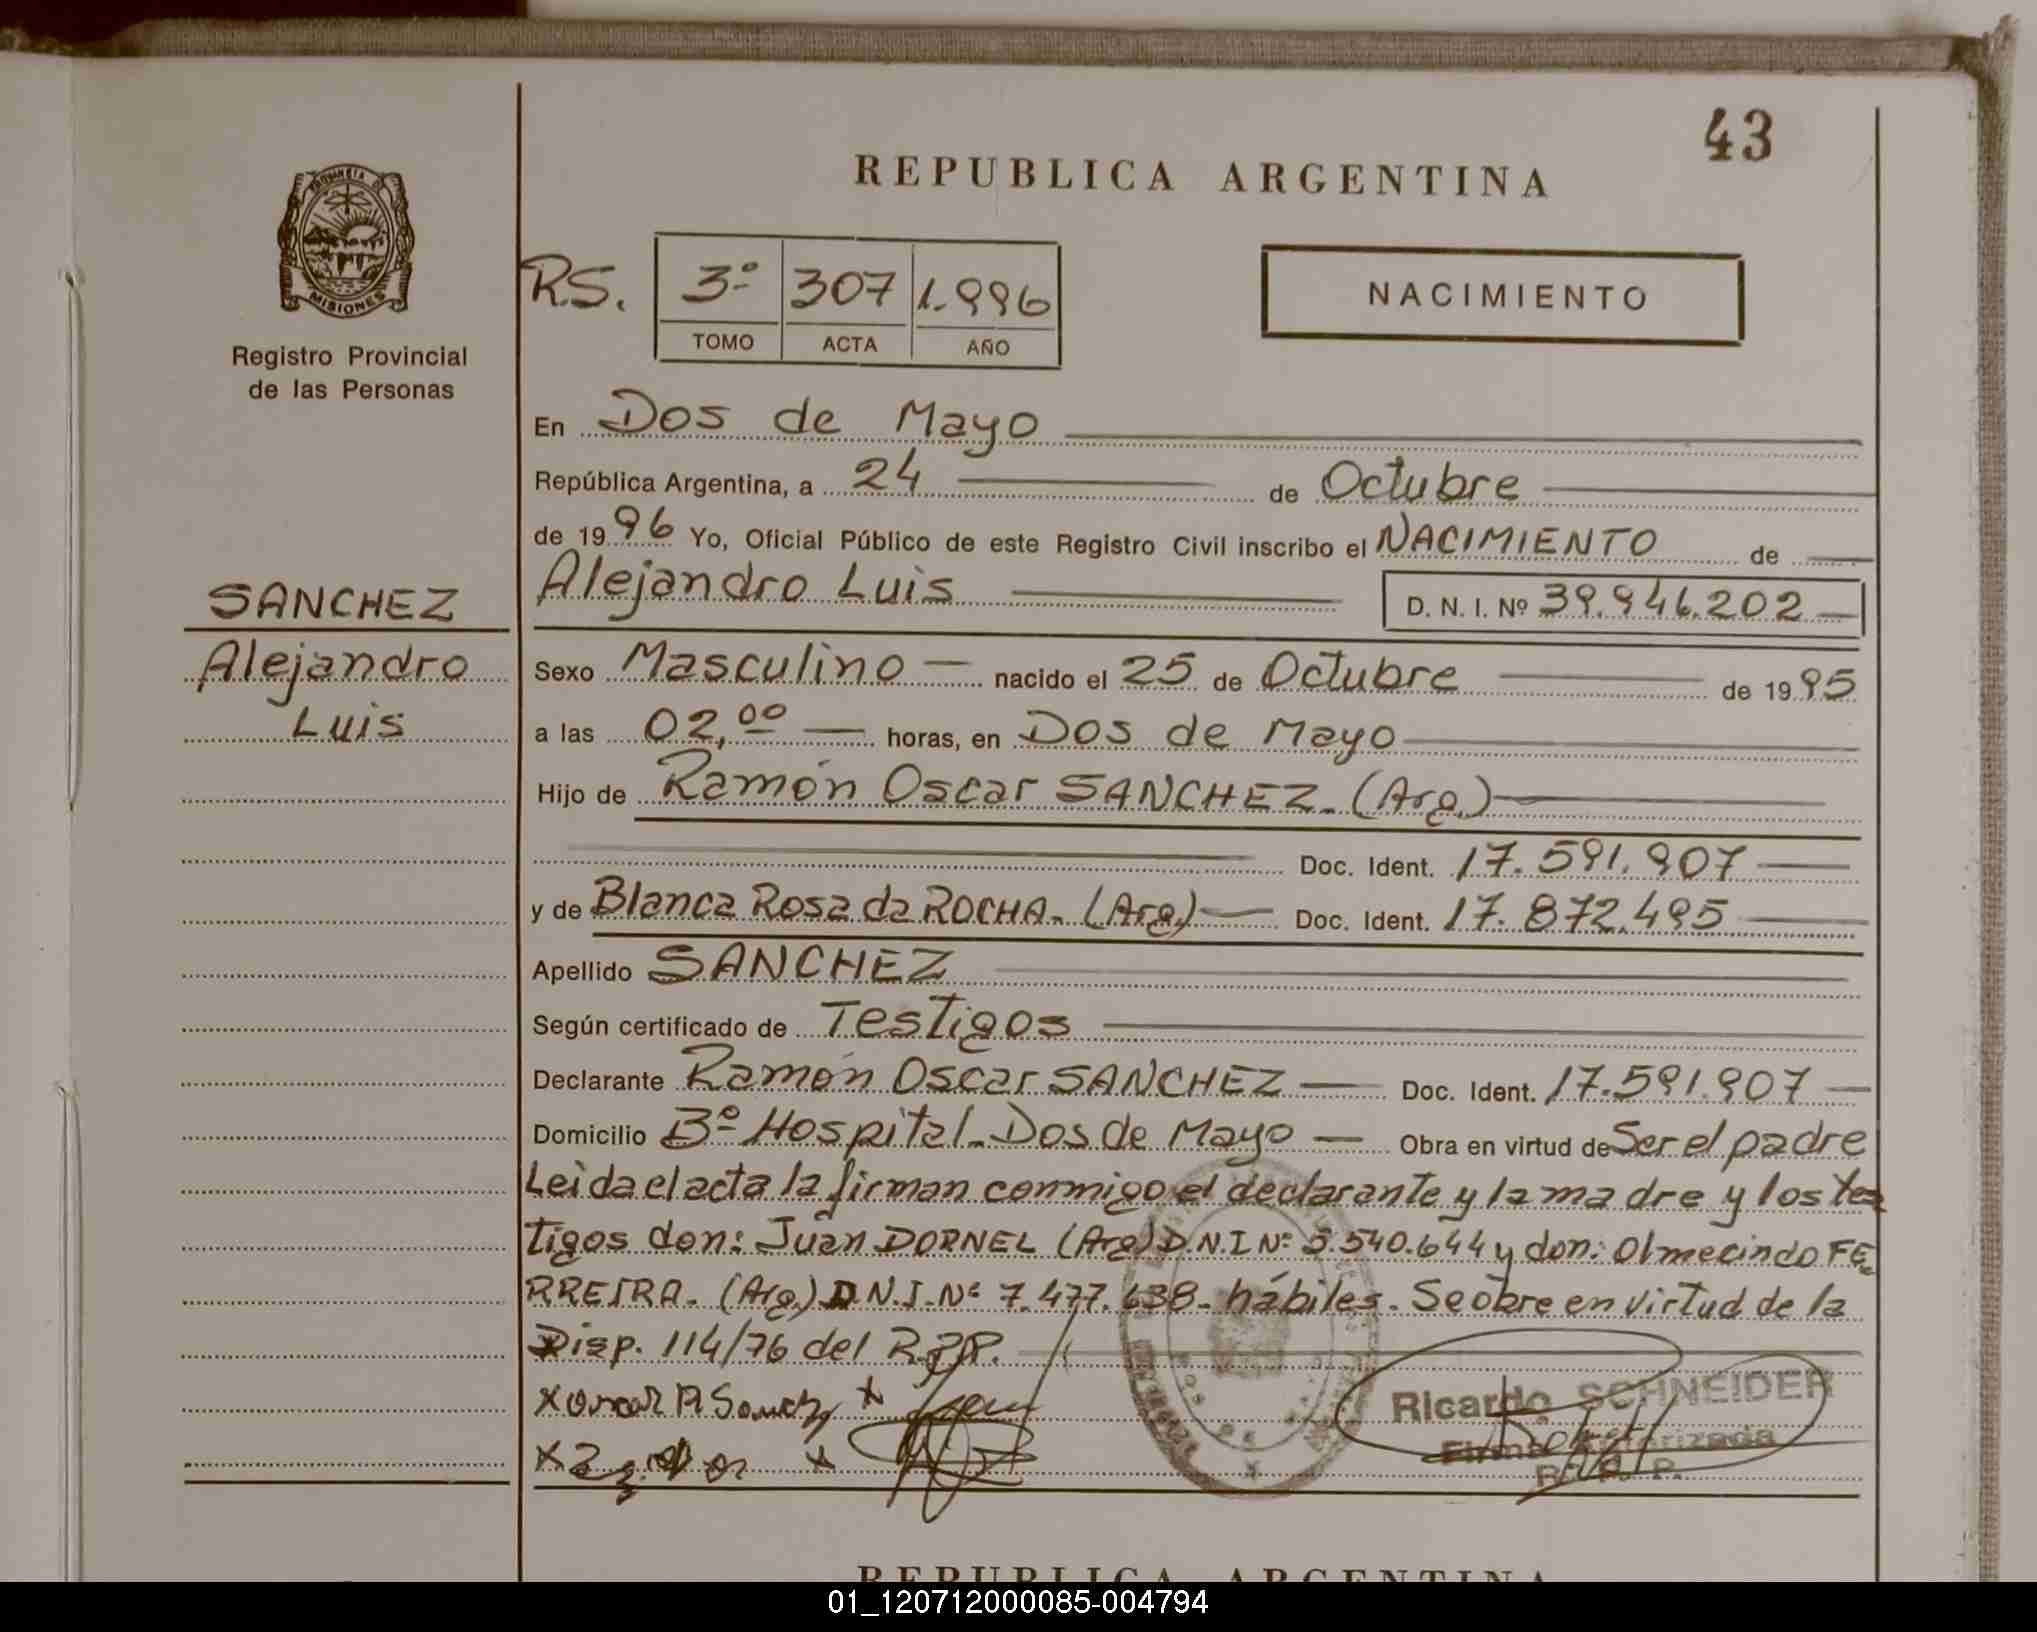 43
REPUBLICA ARGENTINA
PROVINCIA DE
MISIONES
Registro Provincial
de las Personas
R.S. 3º 307 1.996
TOMO ACTA AÑO
NACIMIENTO
En Dos de Mayo
República Argentina, a 24 de Octubre
de 1996 Yo, Oficial Público de este Registro Civil inscribo el NACIMIENTO de
Alejandro Luis D. N. I. Nº 39.946.202
SANCHEZ
Alejandro
Luis
Sexo Masculino nacido el 25 de Octubre de 1995
a las 02,00 horas, en Dos de Mayo
Hijo de Ramón Oscar SANCHEZ. (Arg.)
Doc. Ident. 17.591.907
y de Blanca Rosa da ROCHA. (Arg.) Doc. Ident. 17.872.495
Apellido SANCHEZ
Según certificado de Testigos
Declarante Ramón Oscar SANCHEZ Doc. Ident. 17.591.907
Domicilio Bº Hospital. Dos de Mayo Obra en virtud de Ser el padre
Leida el acta la firman conmigo el declarante y la madre y los tes
tigos don: Juan DORNEL (Arg) D.N.I Nº 5.540.644 y don: Olmecindo FE
RREIRA. (Arg.) D.N.I. Nº 7.477.638. hábiles. Se obre en virtud de la
Disp. 114/76 del R.P.P.
Ricardo SCHNEIDER
Firma Autorizada
R. P. P.
REPUBLICA ARGENTINA
01_120712000085-004794